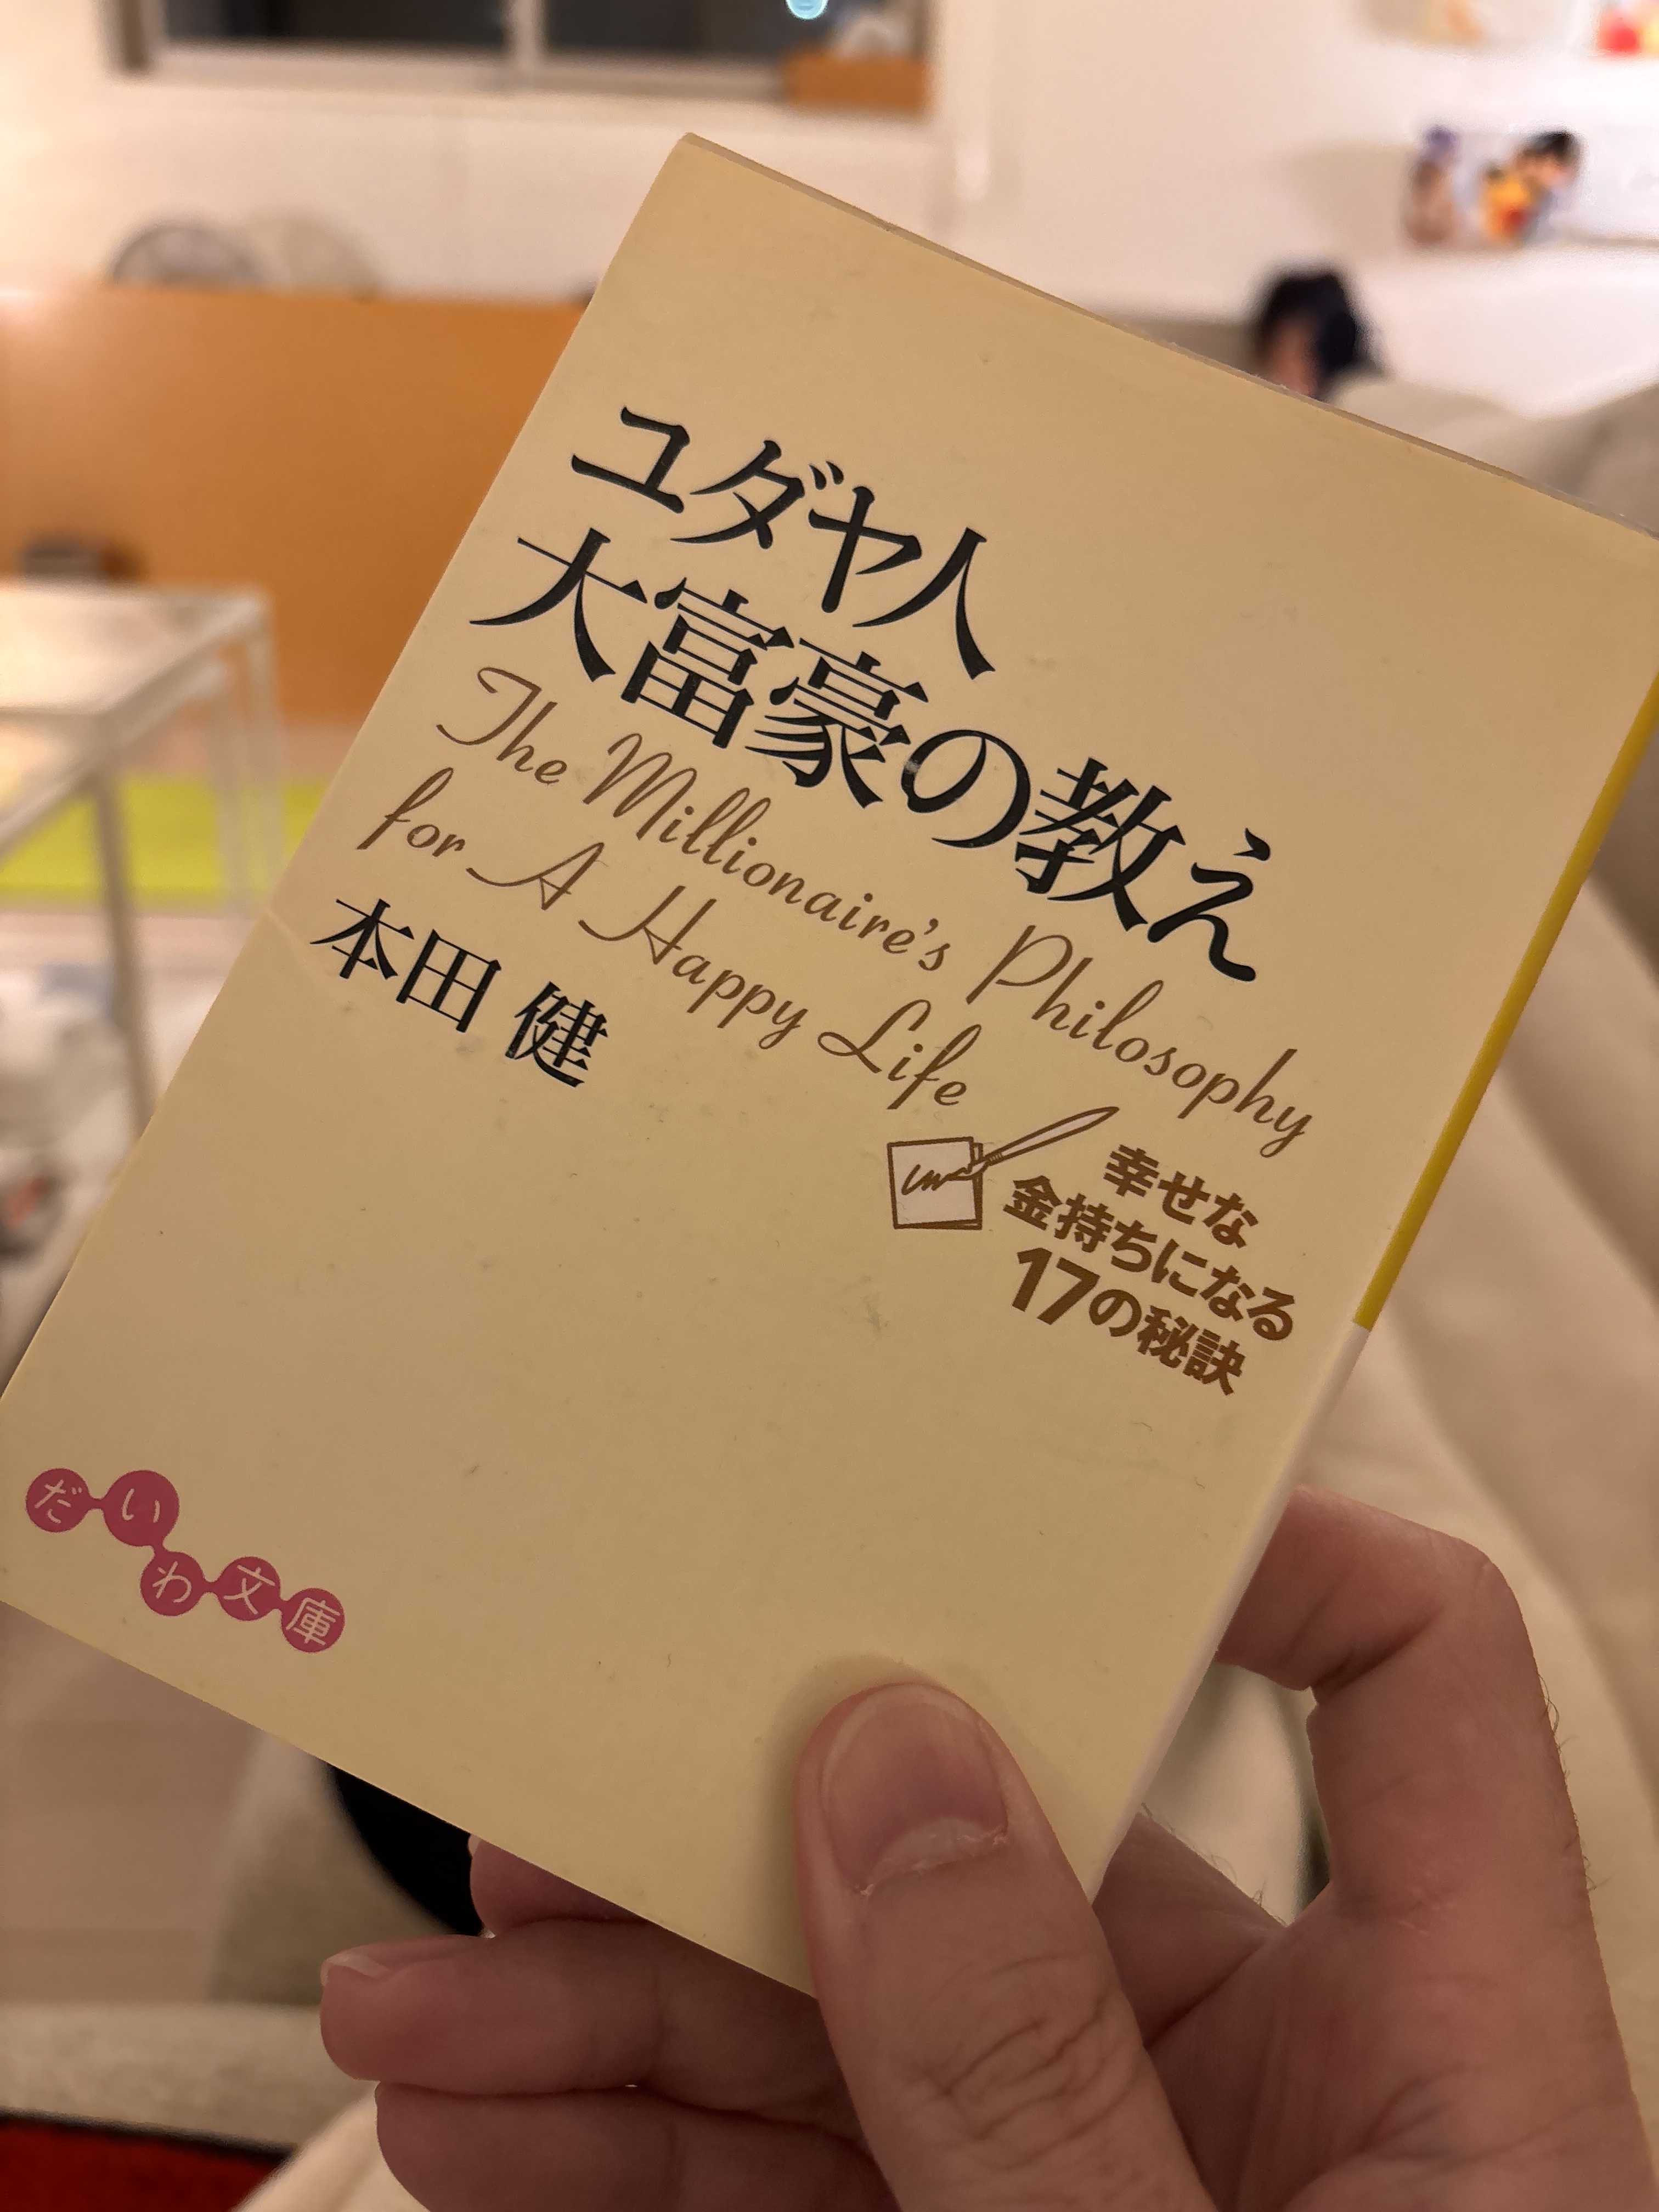 ユダヤ人
大富豪の教え
The Millionaire's Philosophy
for A Happy Life
本田 健
幸せな
金持ちになる
17の秘訣
だいわ文庫